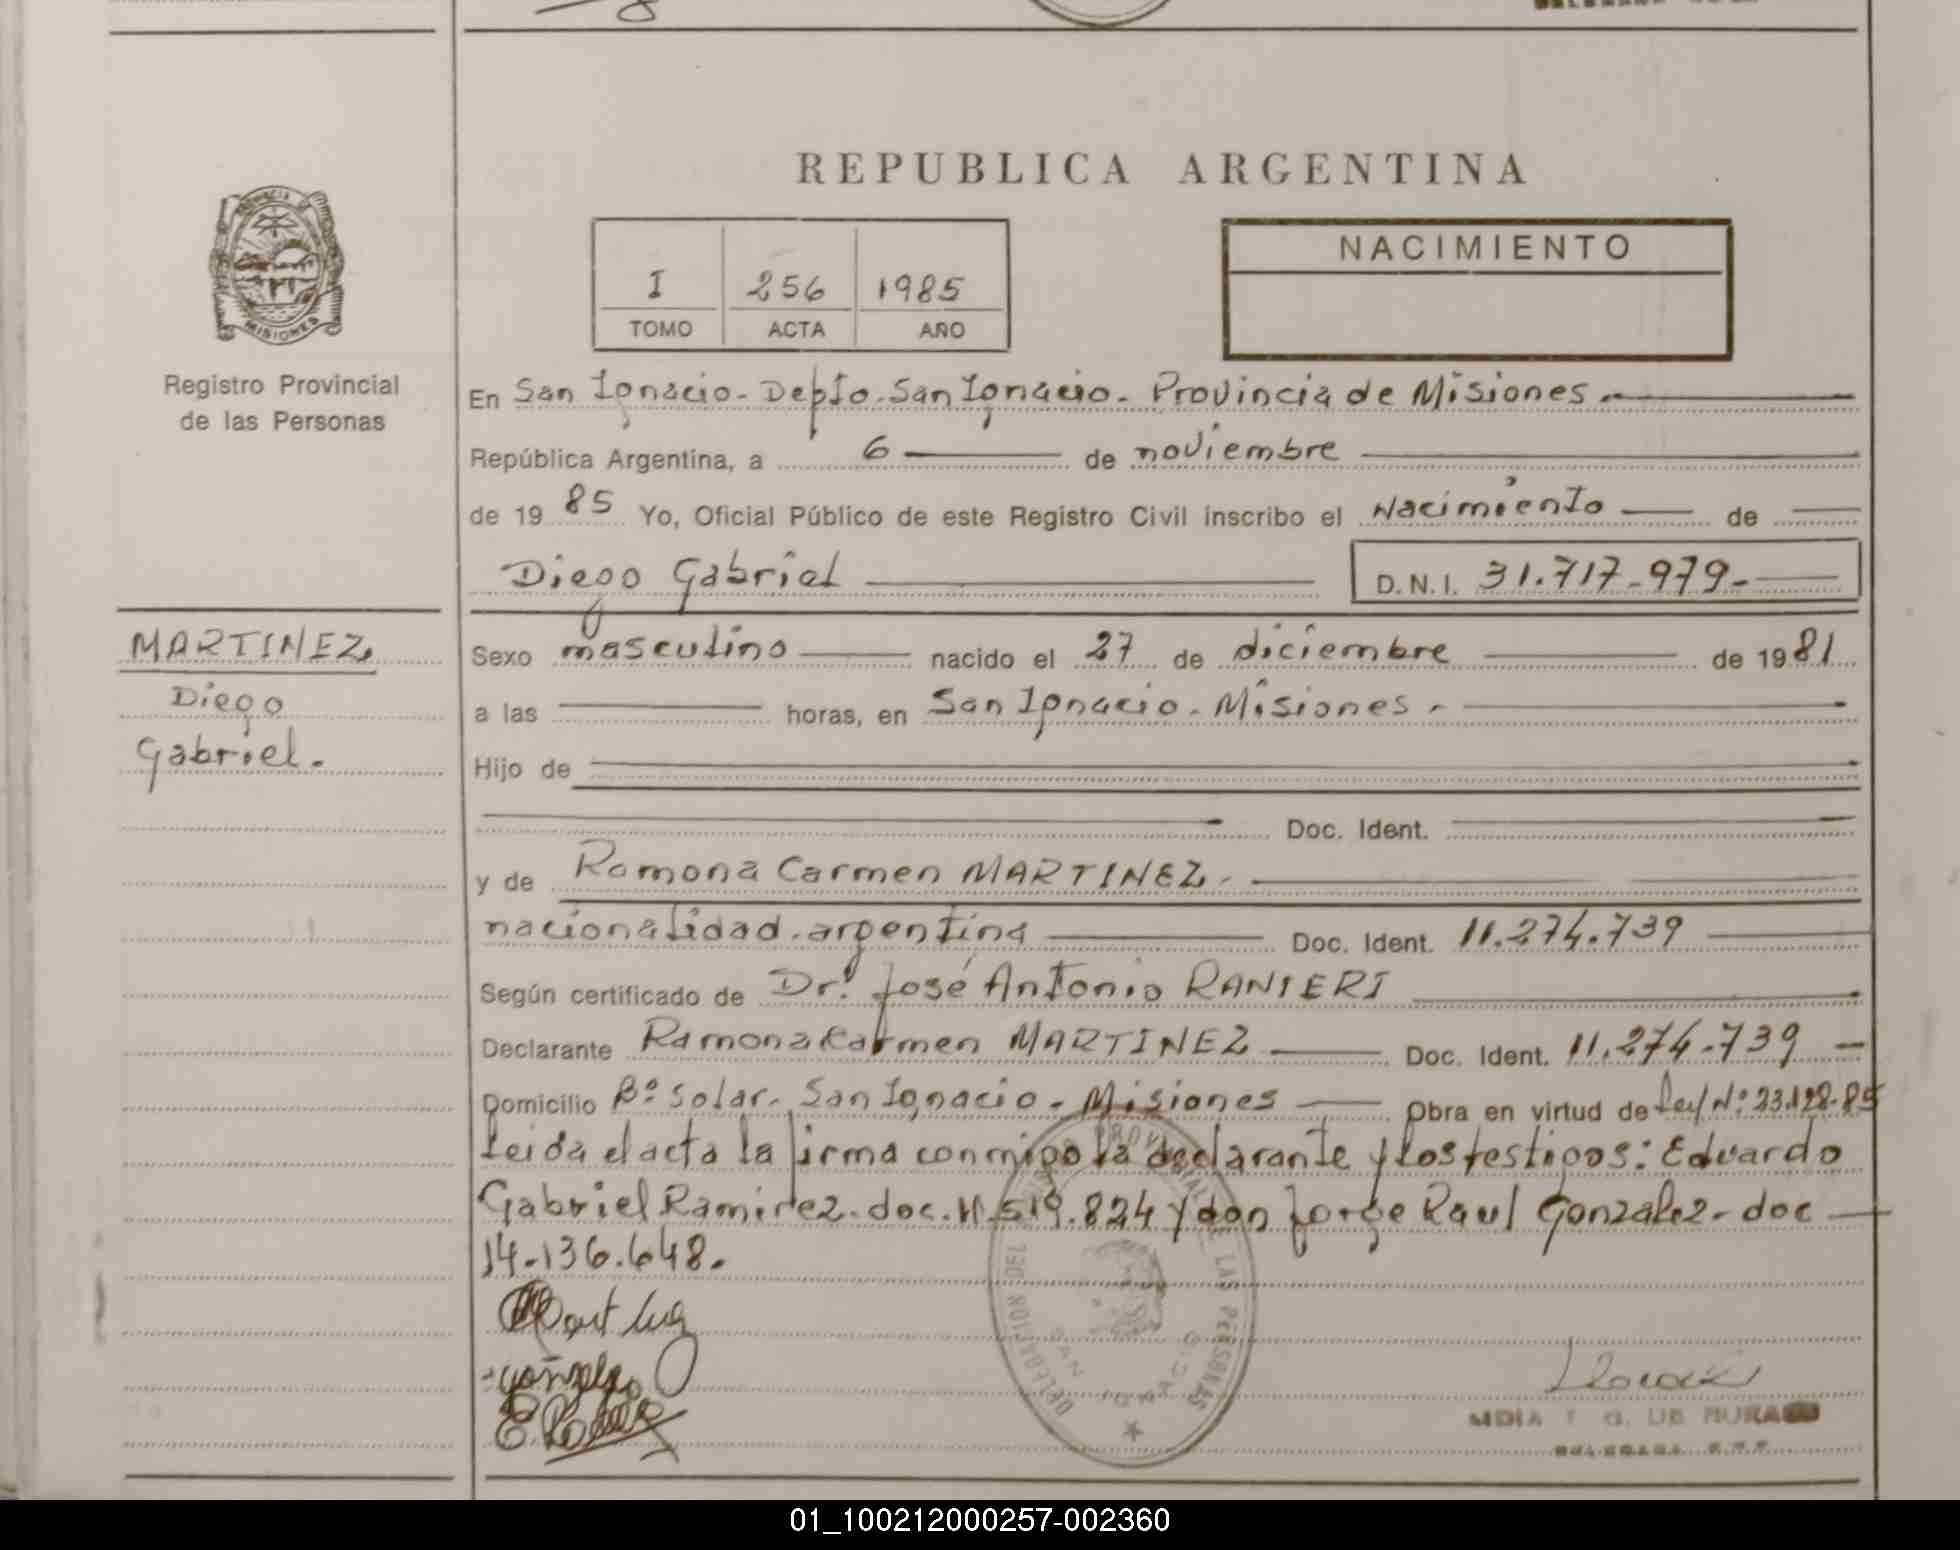 REPUBLICA ARGENTINA
PROVINCIA DE
MISIONES
Registro Provincial
de las Personas
I 256 1985
TOMO ACTA AÑO
NACIMIENTO
En San Ignacio - Depto. San Ignacio - Provincia de Misiones
República Argentina, a 6 de noviembre
de 19 85 Yo, Oficial Público de este Registro Civil inscribo el Nacimiento de
Diego Gabriel D.N.I. 31.717-979-
MARTINEZ
Diego
Gabriel.
Sexo masculino nacido el 27 de diciembre de 19 81
a las horas, en San Ignacio - Misiones -
Hijo de
Doc. Ident.
y de Ramona Carmen MARTINEZ -
nacionalidad argentina Doc. Ident. 11.274.739
Según certificado de Dr. José Antonio RANIERI
Declarante Ramona Carmen MARTINEZ Doc. Ident. 11.274-739
Domicilio Bº Solar - San Ignacio - Misiones Obra en virtud de Ley Nº 23.128-85
Leida el acta la firma conmigo la declarante y los testigos: Eduardo
Gabriel Ramirez - doc. 11.519.824 y don Jorge Raul Gonzalez - doc
14-136.648.
DELEGACION DEL PROVINCIAL DE LAS PERSONAS
SAN IGNACIO
01_100212000257-002360